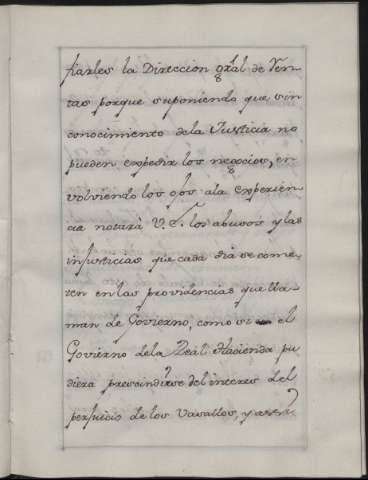 fiarles la Direccion gr̃al de Ren-
tas porque suponiendo que sin
conocimiento dela Justicia no
pueden expedir los negocios, en
volviendo los ojos ala experien-
cia notarà V.S. los abusos y las
injusticias que cada dia se come-
ten en las providencias que lla-
man de Govierno, como si el
Govierno dela Real Hacienda pu-
diera prescindirse del interes del
perjuicio de los Vasallos, y